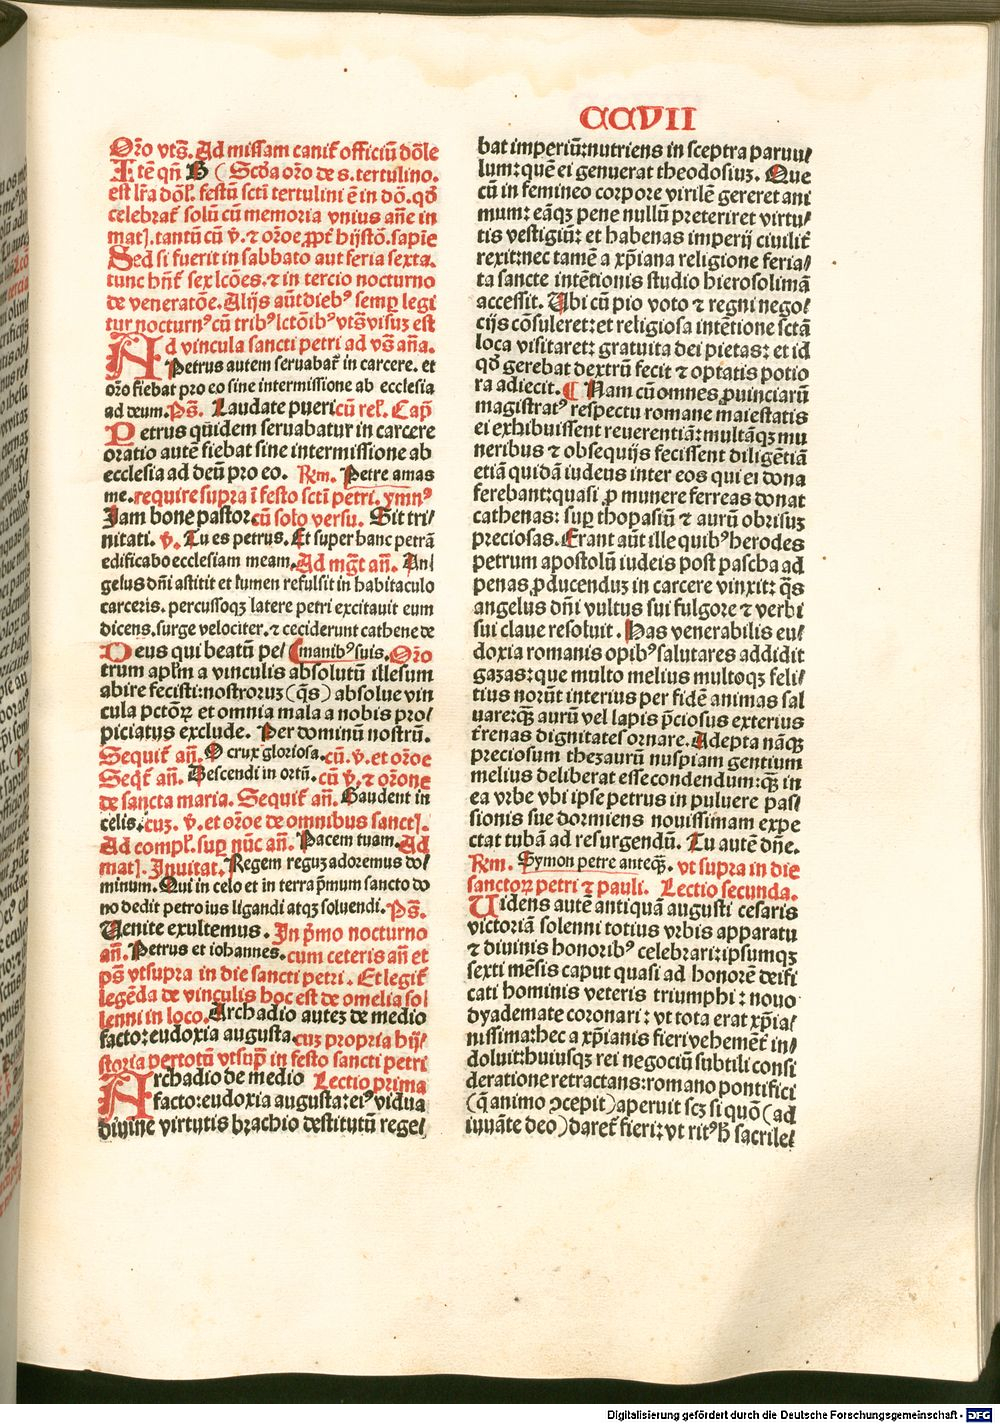 CCVII
Oro vts̄. Ad missam canit̄ officiū dn̄le
Itē qn̄ B ( Scd̄a oro de s. tertulino.
est lr̄a dōl. festū sctī tertulini ē in dō. qd̄
celebrat̄ solū cū memoria vnius an̄e in
mat]. tantū cū v̄. ⁊ ōroe ꝓpt̄ hystō. sapīe
Sed si fuerit in sabbato aut feria sexta.
tunc hn̄t sex lcōes. ⁊ in tercio nocturno
de veneratōe. Alijs aūt diebꝰ semꝑ legi
tur nocturnꝰ cū tribꝰ lctōibꝰ vts̄ visuꝫ est
Ad vincula sancti petri ad vs̄ an̄a.
Petrus autem seruabat̄ in carcere. et
oro fiebat pro eo sine intermissione ab ecclesia
ad deum. Ps̄. Laudate pueri cū rel̄. Cap̄
Petrus quidem seruabatur in carcere
oratio autē fiebat sine intermissione ab
ecclesia ad deū pro eo. Rm. Petre amas
me. require supra ī festo sctī petri. ymnꝰ
Iam bone pastor cū solo versu. Sit tri/
nitati. v̄. Tu es petrus. Et super hanc petrā
edificabo ecclesiam meam. Ad mḡt an̄. An/
gelus dn̄i astitit et lumen refulsit in habitaculo
carceris. percussoqꝫ latere petri excitauit eum
dicens. surge velociter. ⁊ ceciderunt cathene de
Deus qui beatū pe/ (manibꝰ suis. Oro
trum apl̄m a vinculis absolutū illesum
abire fecisti: nostroruꝫ (qs̄) absolue vin
cula pctōꝝ et omnia mala a nobis pro/
piciatus exclude. Per dominū nostrū.
Sequit̄ an̄. O crux gloriosa. cū. v̄. et oroe
Seqt̄ an̄. Descendi in ortū. cū v̄. ⁊ orōne
de sancta maria. Sequit̄ an̄. Gaudent in
celis. cuꝫ. v̄. et oroe de omnibus sanct].
Ad compl̄. suꝑ nūc an̄. Pacem tuam. Ad
mat]. Inuitat̄. Regem reguꝫ adoremus do/
minum. Qui in celo et in terra p̄mum sancto do
no dedit petro ius ligandi atqꝫ soluendi. Ps̄.
Venite exultemus. In p̄mo nocturno
an̄. Petrus et iohannes. cum ceteris an̄ et
ps̄ vt supra in die sancti petri. Et legit̄
legēda de vinculis hoc est de omelia sol
lenni in loco. Archadio auteꝫ de medio
facto: eudoxia augusta. cuꝫ propria hy/
storia per totū vt supꝛ̄ in festo sancti petri
Archadio de medio Lectio prima
facto: eudoxia augusta: eiꝰ vidua
diuine virtutis brachio destitutū rege/
bat imperiū: nutriens in sceptra paruu/
lum: quē ei genuerat theodosiuꝫ. Que
cū in femineo corpore virilē gereret ani
mum: eāqꝫ pene nullū preteriret virtu/
tis vestigiū: et habenas imperij ciuilit̄
rexit: nec tamē a xp̄iana religione feria/
ta sancte intētionis studio hierosolimā
accessit. Ubi cū pio voto ⁊ regni nego/
cijs cōsuleret: et religiosa intētione sctā
loca visitaret: gratuita dei pietas: et id
qd̄ gerebat dextrū fecit ⁊ optatis potio
ra adiecit. ¶ Nam cū omnes ꝓuinciarū
magistratꝰ respectu romane maiestatis
ei exhibuissent reuerentiā: multāqꝫ mu
neribus ⁊ obsequijs fecissent diligētiā
etiā quidā iudeus inter eos qui ei dona
ferebant: quasi ꝓ munere ferreas donat
cathenas: suꝑ thopasiū ⁊ aurū obrisuꝫ
preciosas. Erant aūt ille quibꝰ herodes
petrum apostolū iudeis post pascha ad
penas ꝓducenduꝫ in carcere vinxit: qs̄
angelus dn̄i vultus sui fulgore ⁊ verbi
sui claue resoluit. Has venerabilis eu/
doxia romanis opibꝰ salutares addidit
gazas: que multo melius multoqꝫ feli/
tius norūt interius per fidē animas sal
uare: qꝫ̄ aurū vel lapis p̄ciosus exterius
t̄renas dignitates ornare. Adepta nāqꝫ
preciosum thezaurū nuspiam gentium
melius deliberat esse condendum: qꝫ̄ in
ea vrbe vbi ipse petrus in puluere pas/
sionis sue dormiens nouissimam expe
ctat tubā ad resurgendū. Tu autē dn̄e.
Rm. Symon petre anteqꝫ̄. vt supra in die
sanctoꝝ petri ⁊ pauli. Lectio secunda.
Videns autē antiquā augusti cesaris
victoriā solenni totius vrbis apparatu
⁊ diuinis honoribꝰ celebrari: ipsumqꝫ
sexti mēsis caput quasi ad honorē deifi
cati hominis veteris triumphi: nouo
dyademate coronari: vt tota erat xp̄ia/
nissima: hec a xp̄ianis fieri vehemēt̄ in/
doluit: huiusqꝫ rei negociū subtili consi
deratione retractans: romano pontifici
(q̄ animo ↄcepit) aperuit scꝫ si quō (ad
iuuāte deo) daret̄ fieri: vt ritꝰ h̄ sacrile/
Digitalisierung gefördert durch die Deutsche Forschungsgemeinschaft - DFG